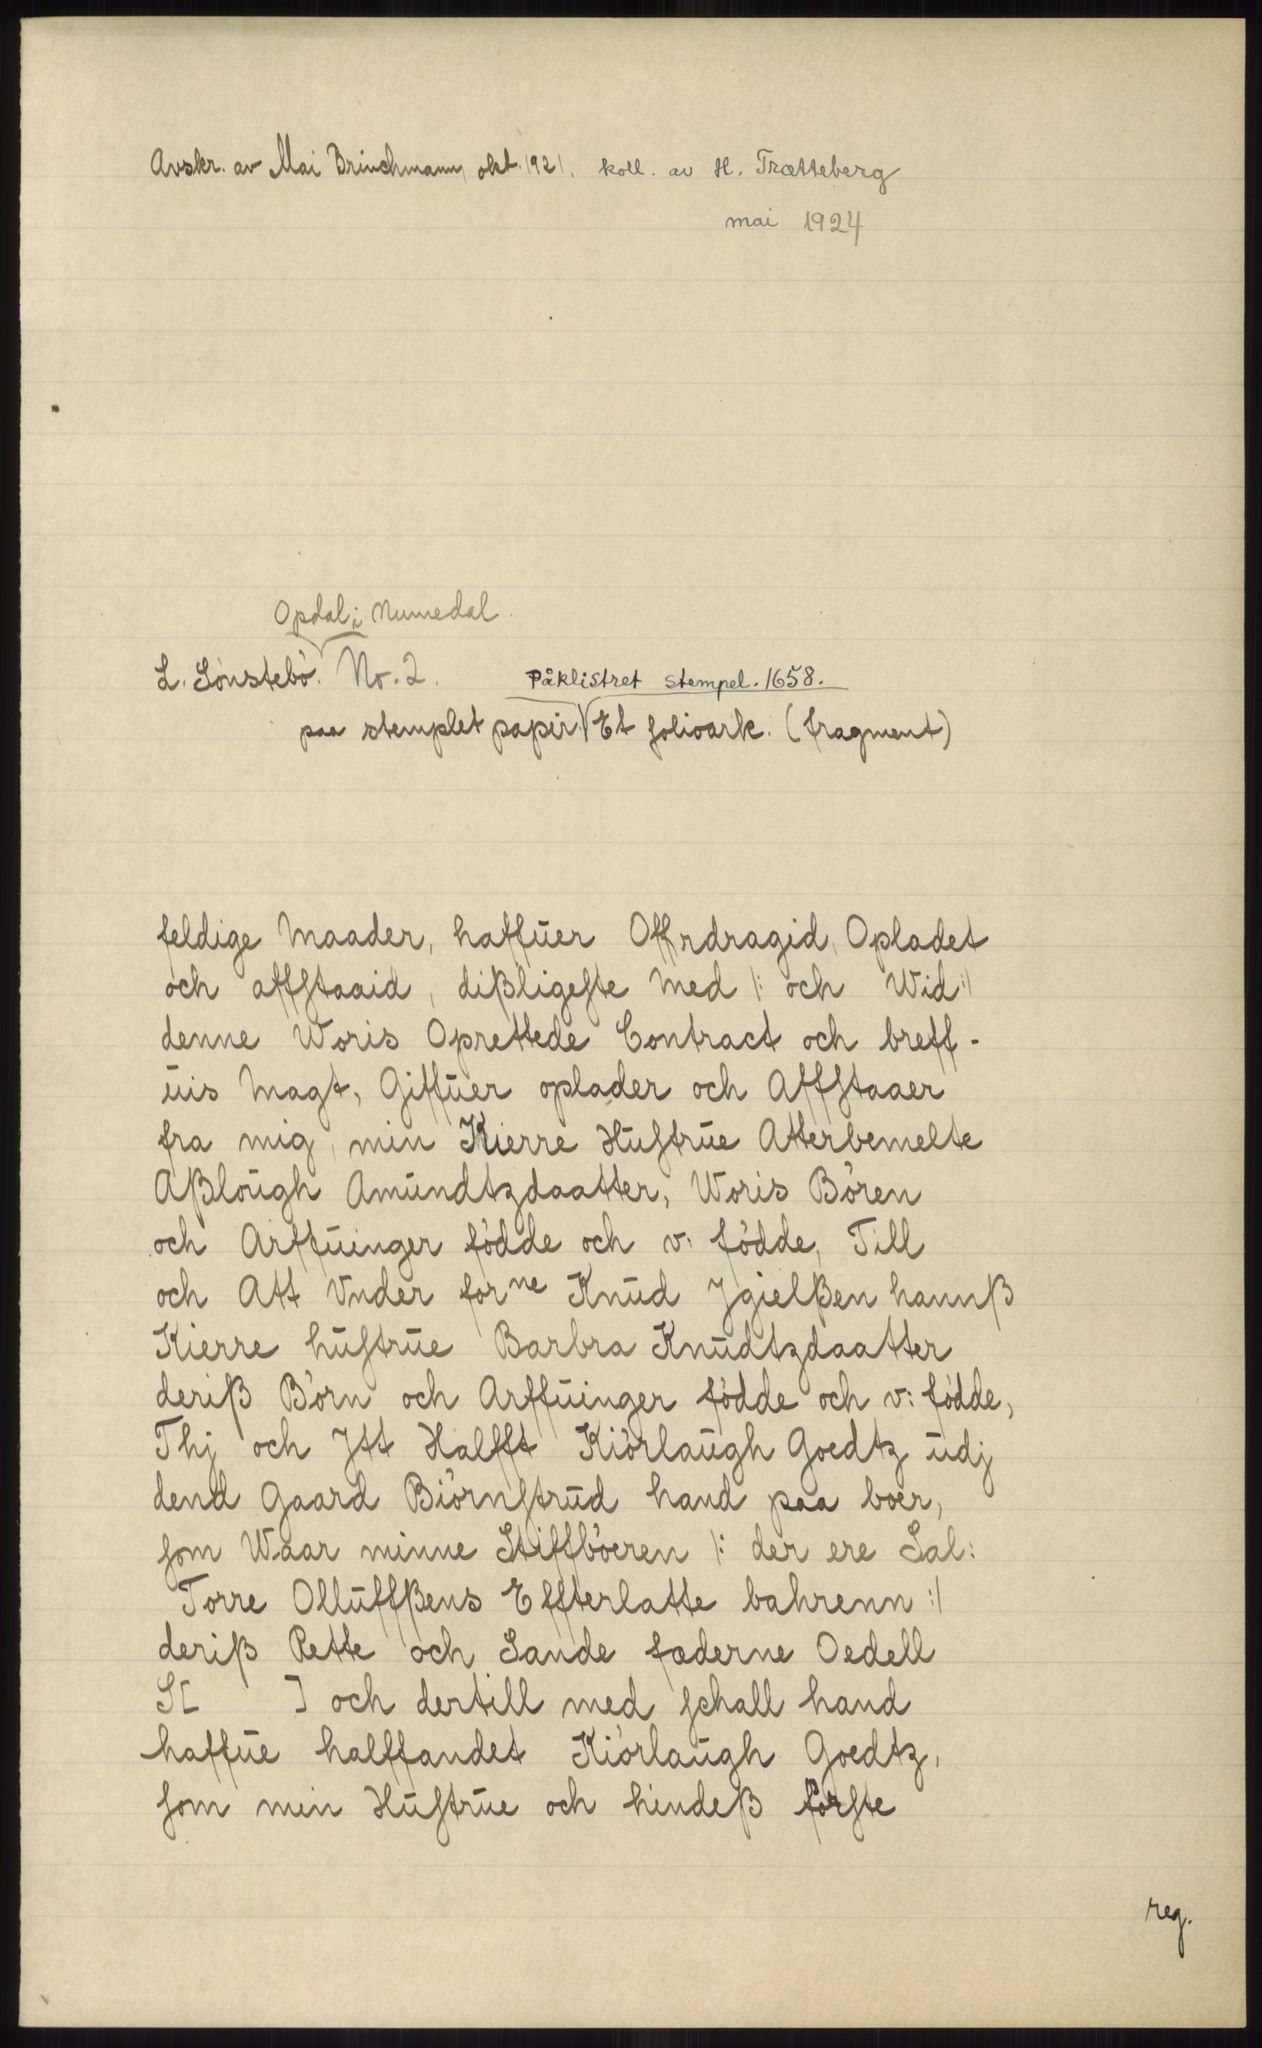 Avskr. av Mai Brinchmann, okt. 1921. koll. av H. Trætteberg
mai 1924
Opdal i Numedal.
L. Sönstebö. No. 2. Påklistret stempel. 1658.
paa stemplet papir Et folioark. (fragment)
feldige Maader, haffuer Offrdragid, Opladet
och affstaaid, dißligeste Med /: och Wid :/
denne Woris Oprettede Contract och breff-
uis Magt, Giffuer oplader och Affstaaer
fra mig, min Kierre Hustrue Atterbemelte
Aßlough Amundtzdaatter, Woris Bören
och Arffuinger födde och v: födde, Till
och Att Vnder forne Knud Jgielßen hannß
Kierre hustrue Barbra Knudtzdaatter
deriß Börn och Arffuinger födde och v: födde,
Thj och Jtt Halfft Kiörlaugh Goedtz udj
dend Gaard Biörnstrud hand paa boer,
som Waar minne Stiffböeren /: der ere Sal:
Torre Olluffßens Effterlatte bahrenn :/
deriß Rette och Sande fæderne Oedell
S[ ] och dertill med schall hand
haffue halffandet Kiörlaugh Goedtz,
som min Hustrue och hindeß förste
reg.